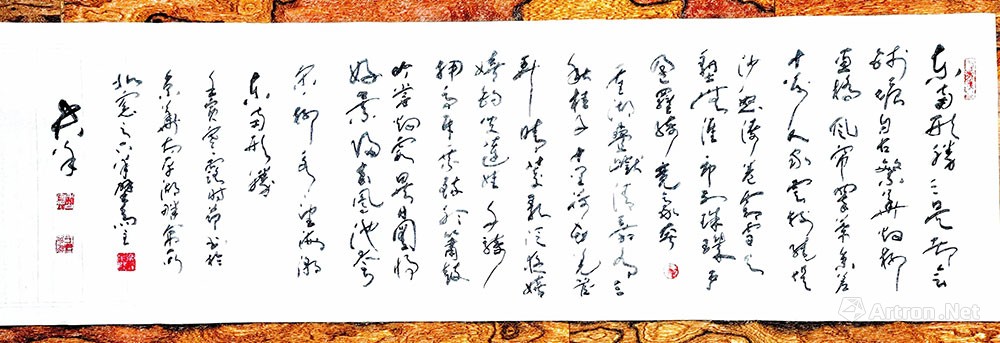 东南形勝三吴都会
钱塘自古繁華烟柳
画橋风帘翠幕参差
十万人家雲树绕堤
沙怒涛卷霜雪天
堑無涯市列珠璣戶
盈羅绮竞豪奢
重湖叠巘清嘉有三
秋桂子十里荷花羌管
弄晴菱歌泛夜嬉
嬉钓叟莲娃千骑
拥高牙乘醉聽簫鼓
吟赏烟霞異日图将
好景归去凤池夸
宋柳永望海潮
东南形勝
壬寅寒露时节书於
京華太平湖
Artron.Net